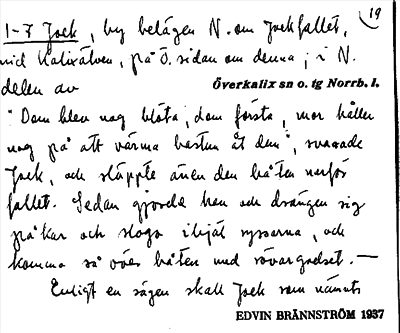 19
1-7 Jock, by belägen N. om Jockfallet,
vid Kalixälven, på Ö. sidan om denna, i N.
delen av
Överkalix sn o. tg Norrb. l.
"Dom blev nog blöta, dom första, mor håller
nog på att värma bastun åt dem", svarade
Jock, och släppte även den båten nerför
fallet. Sedan gjorde han och drängen sig
påkar och slogo ihjäl ryssarna, och
komma så över båten med rövargodset. —
Enligt en sägen skall Jock som nämnts
EDVIN BRÄNNSTRÖM 1937